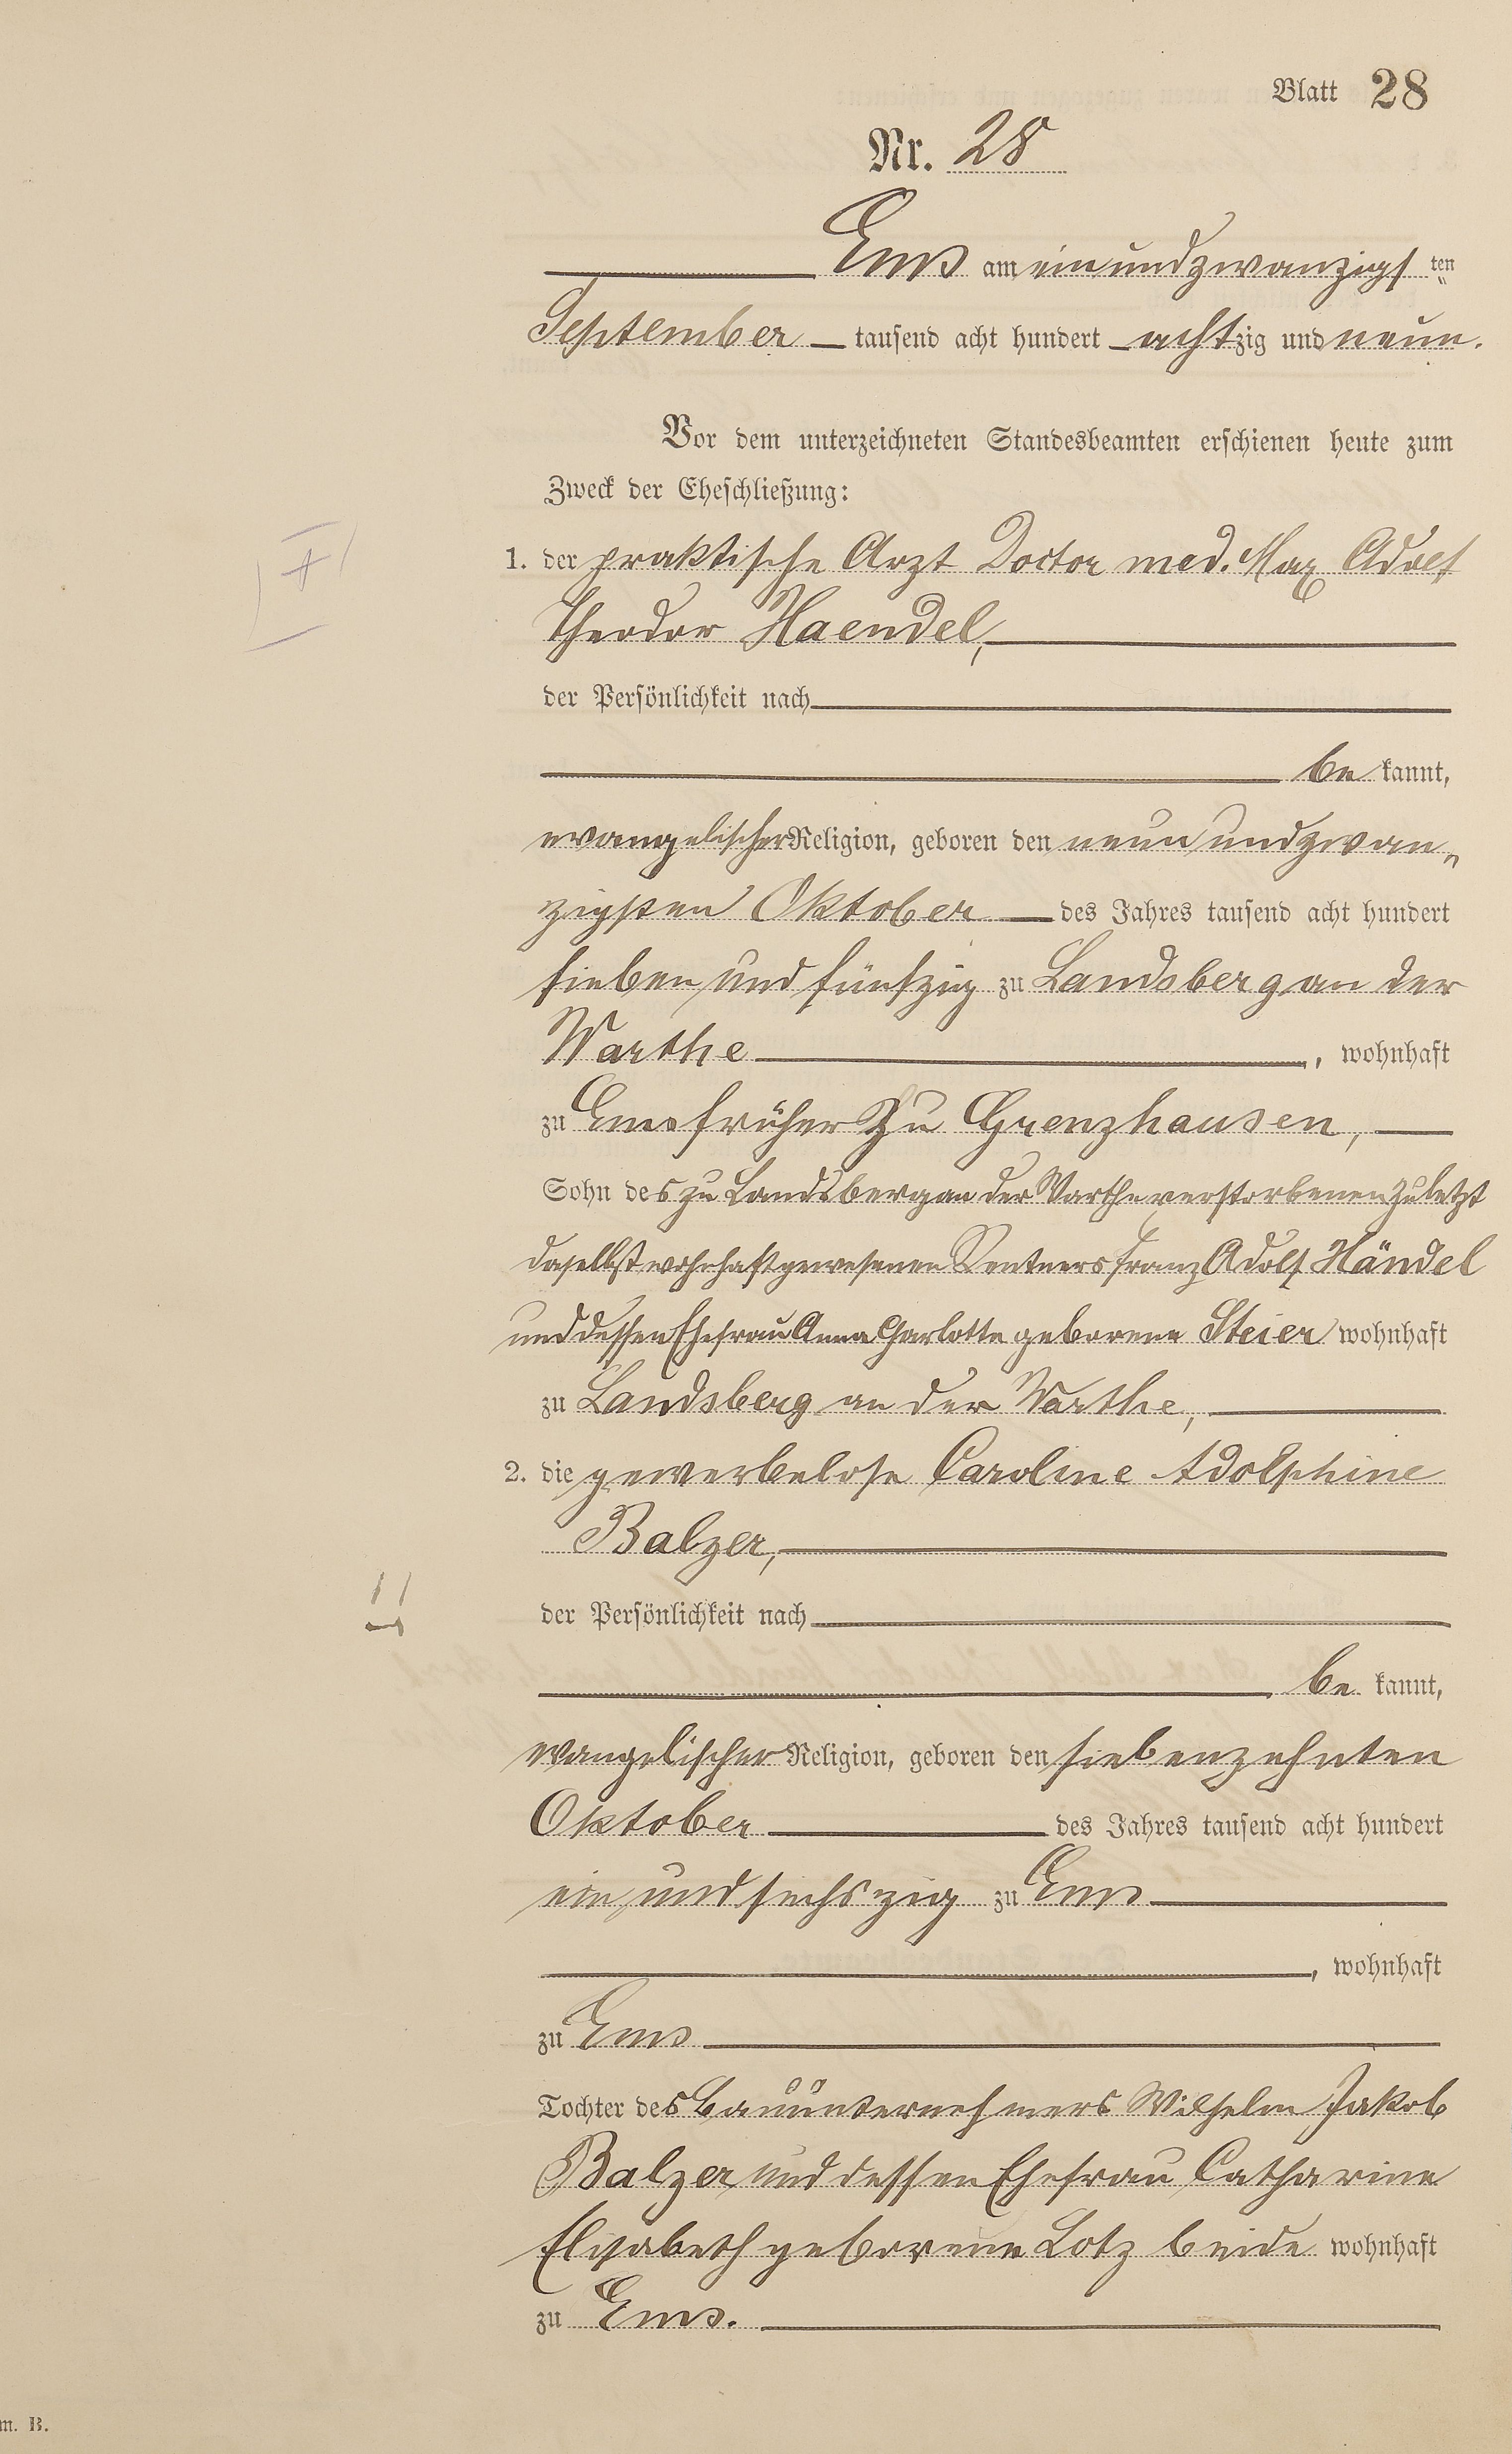 Blatt 28
Nr. 28
Ems am ein und zwanzigsten
September tausend acht hundert achtzig und neun.
Vor dem unterzeichneten Standesbeamten erschienen heute zum
Zweck der Eheschließung:
1. der praktische Arzt Doctor med. Max Adolf
Theodor Haendel,
der Persönlichkeit nach
be kannt,
evangelischer Religion, geboren den neun und zwan„
zigsten Oktober des Jahres tausend acht hundert
sieben und fünfzig zu Landsberg an der
Warthe, wohnhaft
zu Ems früher zu Grenzhausen,
Sohn des zu Landsberg an der Warthe verstorbenen zuletzt
daselbst wohnhaft gewesenen Rentners Franz Adolf Händel
und dessen Ehefrau Anna Charlotte geborene Steier wohnhaft
zu Landsberg an der Warthe,
2. die gewerbelose Caroline Adolphine
Balzer,
der Persönlichkeit nach
be kannt,
evangelischer Religion, geboren den siebenzehnten
Oktober des Jahres tausend acht hundert
ein und sechszig zu Ems
, wohnhaft
zu Ems
Tochter des Bauunternehmers Wilhelm Jakob
Balzer und dessen Ehefrau Catharine
Elisabeth geborene Lotz beide wohnhaft
zu Ems.
m. B.